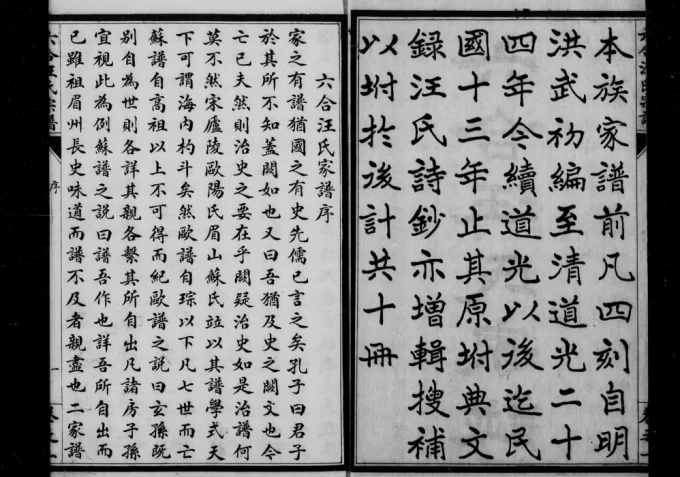 本族家譜前凡四刻自明
洪武初編至清道光二十
四年今續道光以後迄民
國十三年止其原坿典文
錄汪氏詩鈔亦增輯搜補
以坿於後計共十冊
六合汪氏家譜序
家之有譜猶國之有史先儒已言之矣孔子曰君子
於其所不知蓋闕如也又曰吾猶及史之闕文也今
亡已夫然則治史之要在乎闕疑治史如是治譜何
莫不然宋廬陵歐陽氏眉山蘇氏竝以其譜學式天
下可謂海内杓斗矣然歐譜自琮以下凡七世而亡
蘇譜自高祖以上不可得而紀歐譜之説曰玄孫既
别自為世則各詳其親各繫其所自出凡諸房子孫
宜視此為例蘇譜之説曰譜吾作也詳吾所自出而
已雖祖眉州長史味道而譜不及者親盡也二家譜
六合汪氏宗譜
序
一